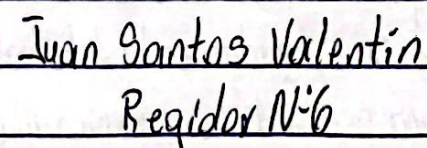 Juan Santos Valentín
Regidor N:6